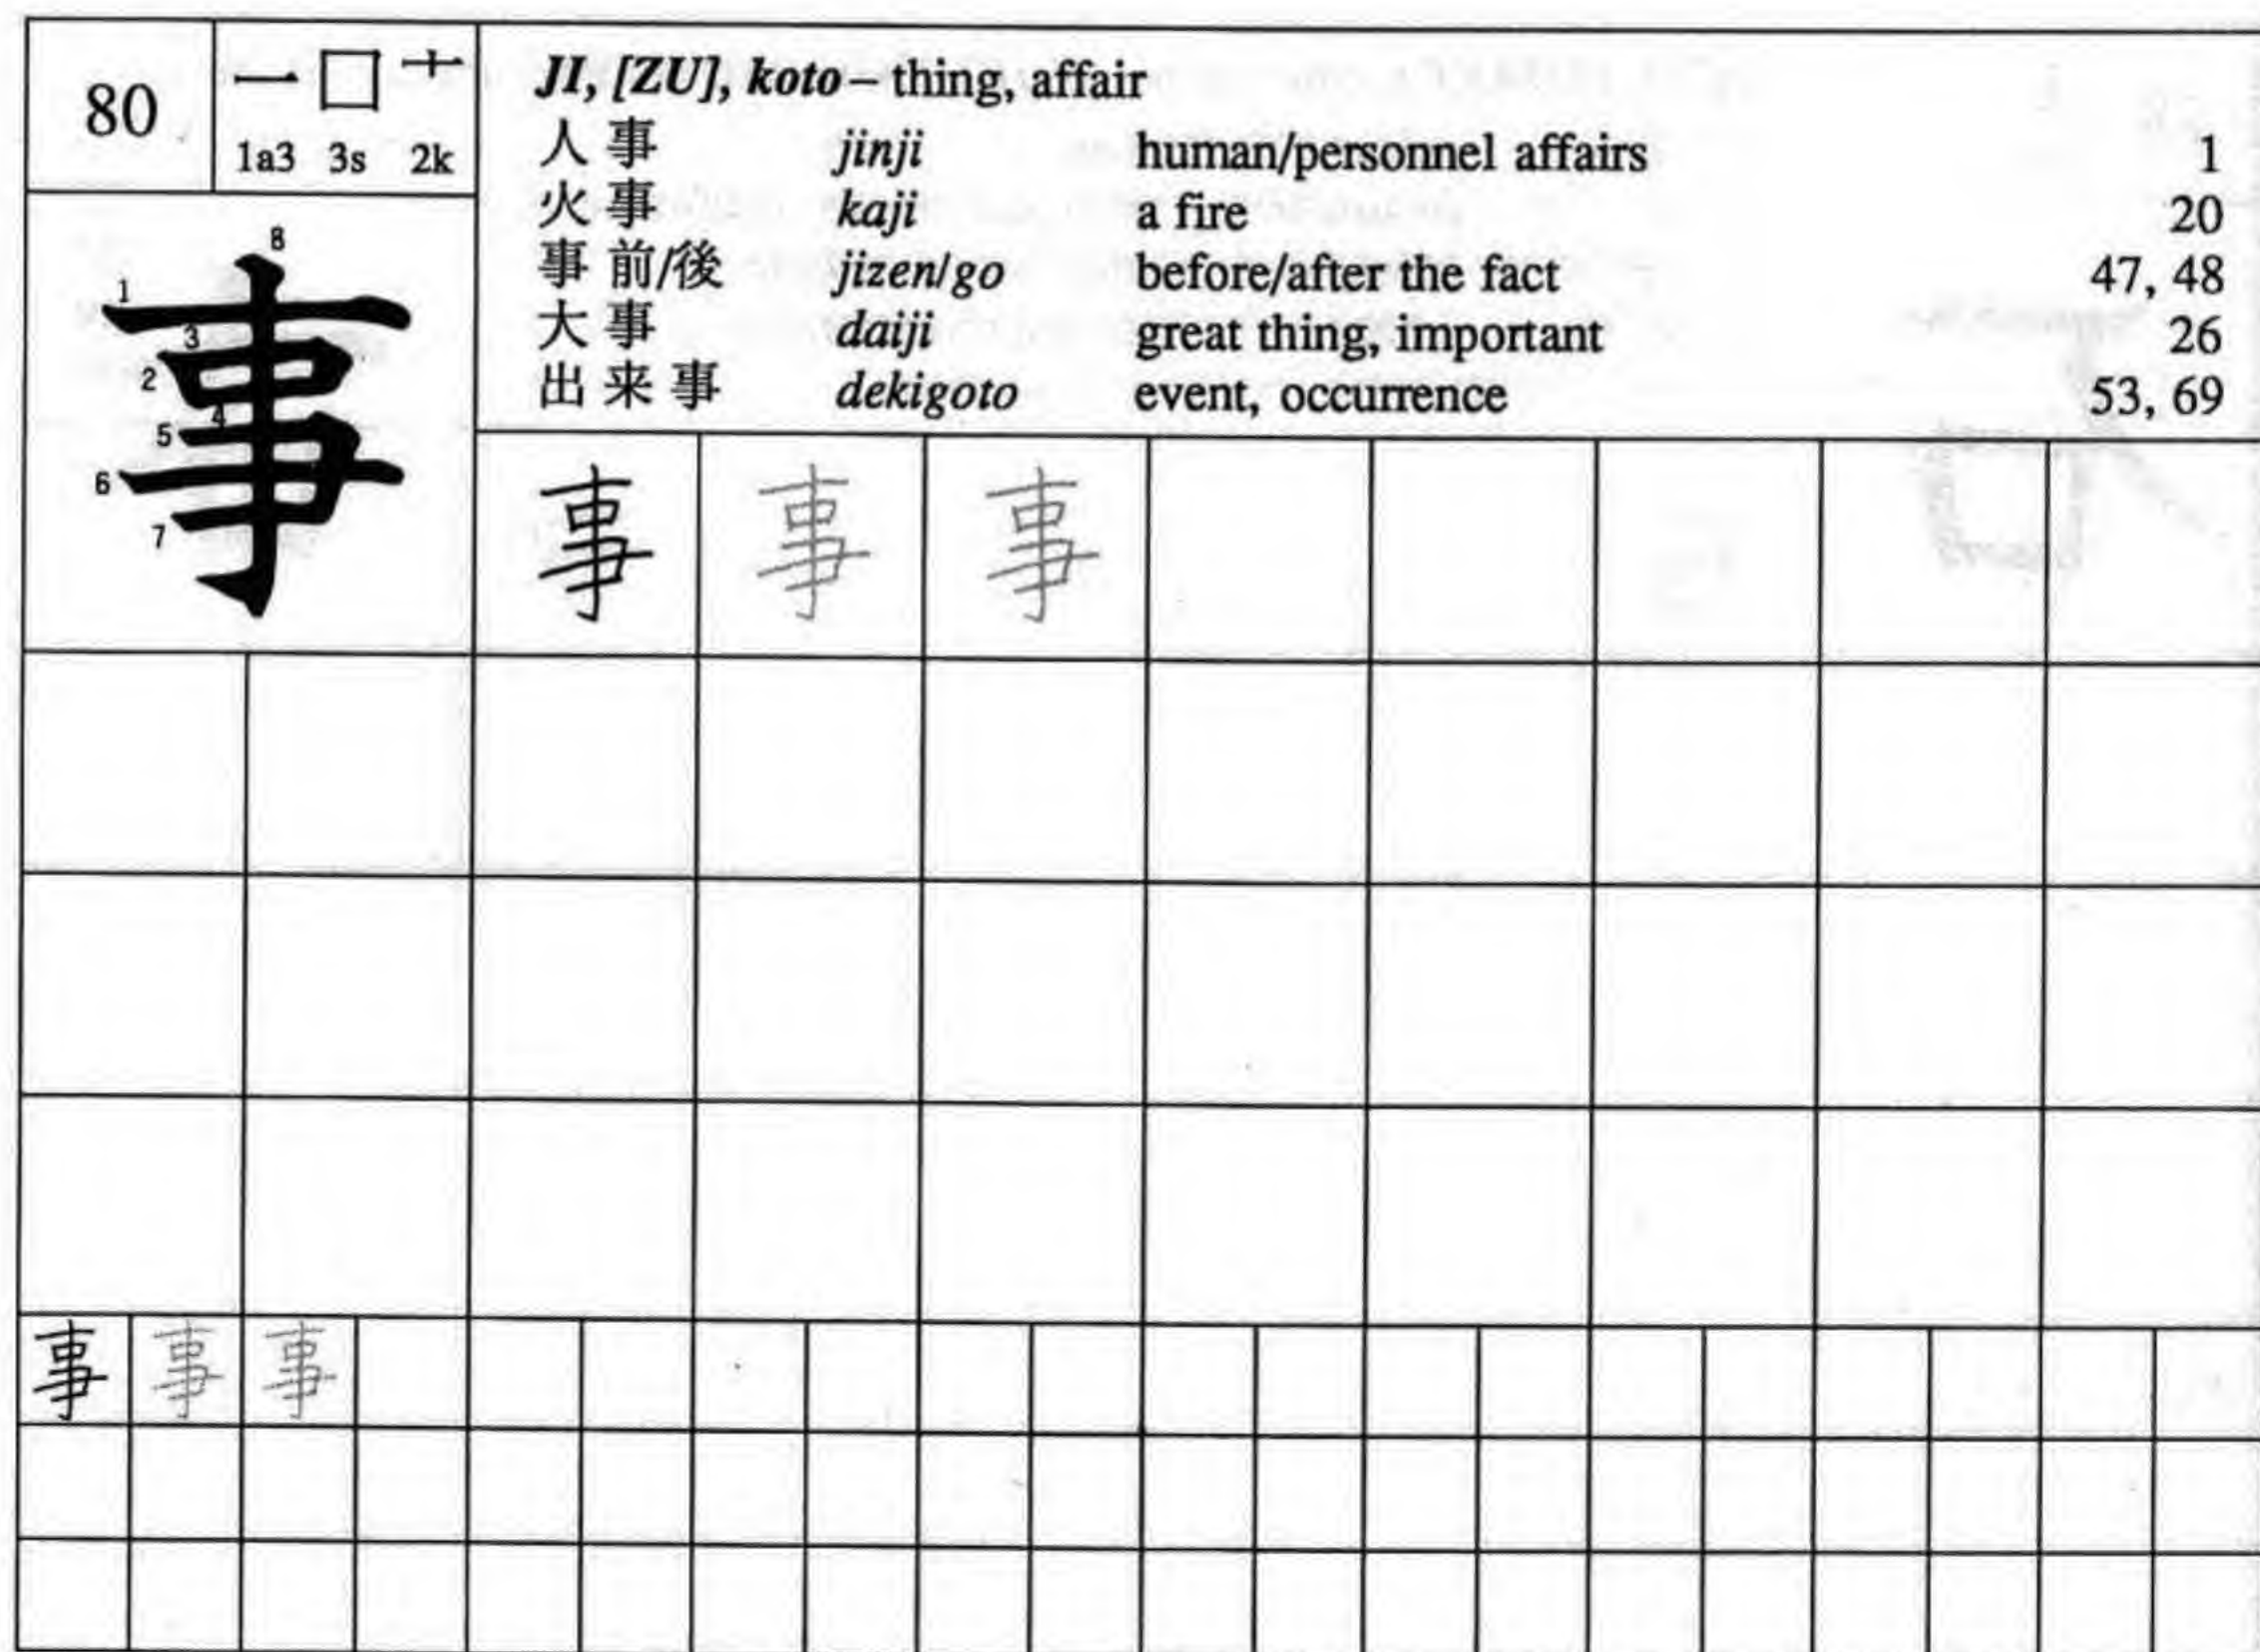 80
一 口 十
1a3 3s 2k
JI, [ZU], koto – thing, affair
人事 jinji human/personnel affairs 1
火事 kaji a fire 20
事前/後 jizen/go before/after the fact 47, 48
大事 daiji great thing, important 26
出来事 dekigoto event, occurrence 53, 69
事
1 2 3 4 5 6 7 8
事 事 事
事 事 事